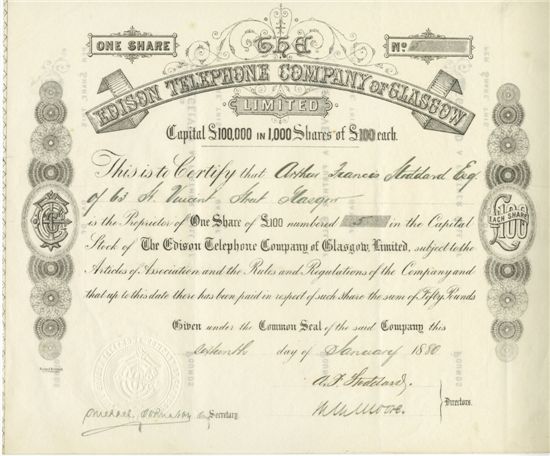 ONE SHARE
THE
No
EDISON TELEPHONE COMPANY OF GLASGOW
LIMITED
Capital £100,000 IN 1,000 Shares of £100 each.
This is to Certify that Arthur Francis Stoddard Esq.
of 63 St. Vincent Street Glasgow
is the Proprietor of One Share of £100 numbered 5 in the Capital
Stock of The Edison Telephone Company of Glasgow, Limited, subject to the
Articles of Association and the Rules and Regulations of the Company and
that up to this date there has been paid in respect of such share the sum of Fifty Pounds
£100
EACH SHARE
Given under the Common Seal of the said Company this
Sixteenth day of January 1880
A. F. Stoddard
Moore.
Directors.
Michael Secretary.